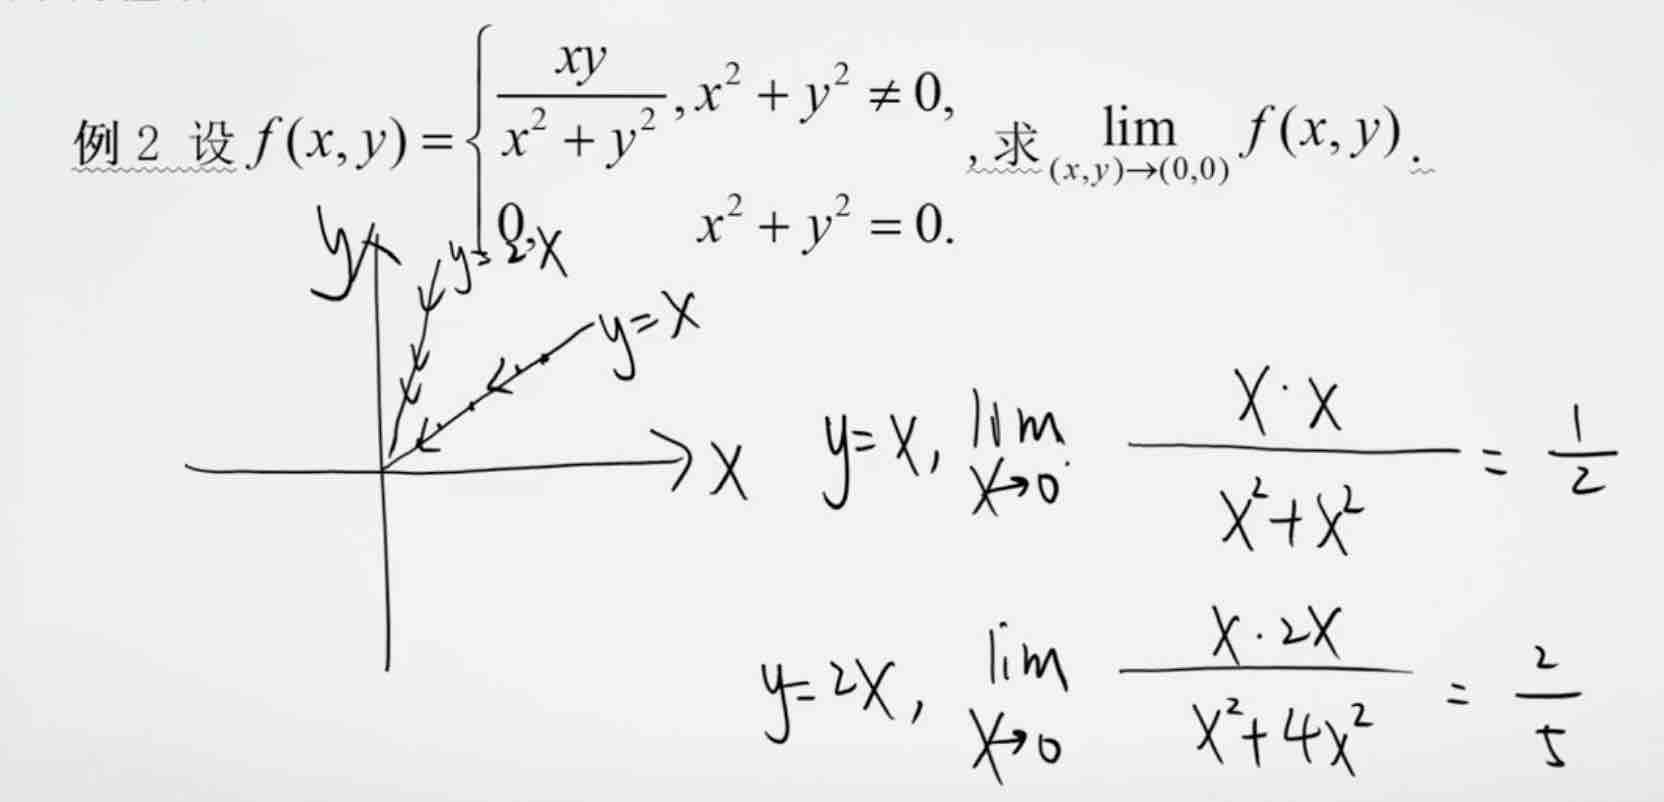 例 2 设 f(x, y) = { xy / (x² + y²), x² + y² ≠ 0, 0, x² + y² = 0. , 求 lim (x,y)→(0,0) f(x, y).
y
y = 2x
y = x
x
y = x, lim x→0 x · x / (x² + x²) = 1/2
y = 2x, lim x→0 x · 2x / (x² + 4x²) = 2/5